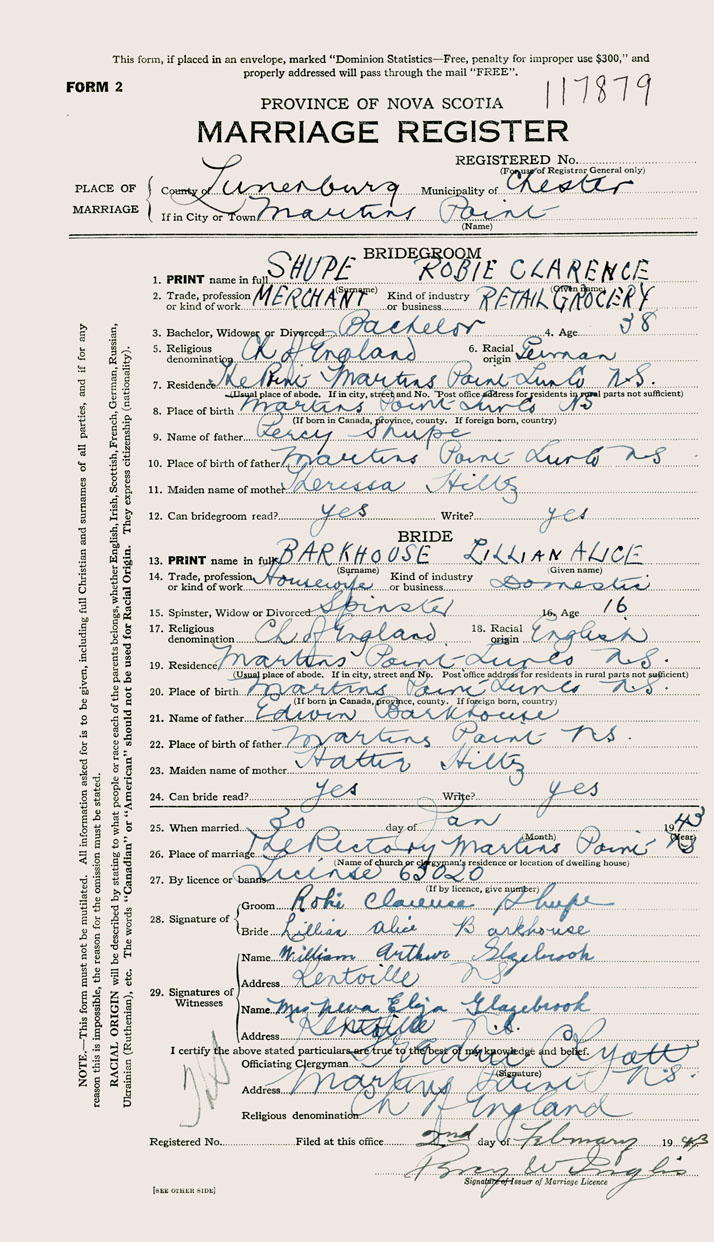 This form, if placed in an envelope, marked "Dominion Statistics—Free, penalty for improper use $300," and
properly addressed will pass through the mail "FREE".
FORM 2
117879
PROVINCE OF NOVA SCOTIA
MARRIAGE REGISTER
REGISTERED No.
(For use of Registrar General only)
PLACE OF MARRIAGE
County of Lunenburg Municipality of Chester
If in City or Town Martins Point
(Name)
BRIDEGROOM
1. PRINT name in full SHUPE ROBIE CLARENCE
(Surname) (Given name)
2. Trade, profession or kind of work MERCHANT Kind of industry or business RETAIL GROCERY
3. Bachelor, Widower or Divorced Bachelor 4. Age 38
5. Religious denomination Ch of England 6. Racial origin German
7. Residence The Point Martins Point Lun Co N.S.
(Usual place of abode. If in city, street and No. Post office address for residents in rural parts not sufficient)
8. Place of birth Martins Point Lun Co NS
(If born in Canada, province, county. If foreign born, country)
9. Name of father Percy Shupe
10. Place of birth of father Martins Point Lun Co NS
11. Maiden name of mother Theressa Hiltz
12. Can bridegroom read? yes Write? yes
BRIDE
13. PRINT name in full BARKHOUSE LILLIAN ALICE
(Surname) (Given name)
14. Trade, profession or kind of work Housewife Kind of industry or business Domestic
15. Spinster, Widow or Divorced Spinster 16. Age 16
17. Religious denomination Ch of England 18. Racial origin English
19. Residence Martins Point Lun Co N.S.
(Usual place of abode. If in city, street and No. Post office address for residents in rural parts not sufficient)
20. Place of birth Martins Point Lun Co N.S.
(If born in Canada, province, county. If foreign born, country)
21. Name of father Edwin Barkhouse
22. Place of birth of father Martins Point NS.
23. Maiden name of mother Hatter Hiltz
24. Can bride read? yes Write? yes
25. When married 30 day of Jan 1943
(Month) (Year)
26. Place of marriage The Rectory Martins Point NS
(Name of church or clergyman's residence or location of dwelling house)
27. By licence or banns License 63020
(If by licence, give number)
28. Signature of
Groom Robie Clarence Shupe
Bride Lillian Alice Barkhouse
29. Signatures of Witnesses
Name William Arthur Glazebrook
Address Kentville NS
Name Mrs Neva Eliza Glazebrook
Address Kentville N.S.
I certify the above stated particulars are true to the best of my knowledge and belief.
Officiating Clergyman
(Signature)
Address Martins Point N.S.
Religious denomination Ch of England
Registered No. Filed at this office 2nd day of February 1943
Percy W Inglis
Signature of Issuer of Marriage Licence
[SEE OTHER SIDE]
NOTE.—This form must not be mutilated. All information asked for is to be given, including full Christian and surnames of all parties, and if for any
reason this is impossible, the reason for the omission must be stated.
RACIAL ORIGIN will be described by stating to what people or race each of the parents belongs, whether English, Irish, Scottish, French, German, Russian,
Ukrainian (Ruthenian), etc. The words "Canadian" or "American" should not be used for Racial Origin. They express citizenship (nationality).